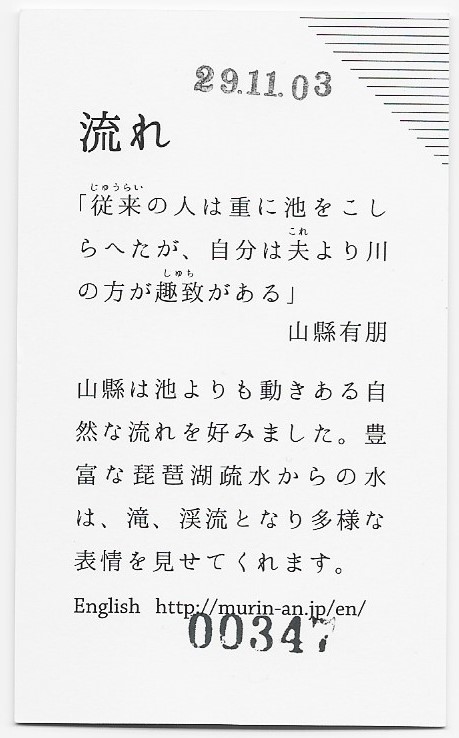 29.11.03
流れ
「従来の人は重に池をこし
らへたが、自分は夫より川
の方が趣致がある」
山縣有朋
山縣は池よりも動きある自
然な流れを好みました。豊
富な琵琶湖疏水からの水
は、滝、渓流となり多様な
表情を見せてくれます。
English http://murin-an.jp/en/
00347